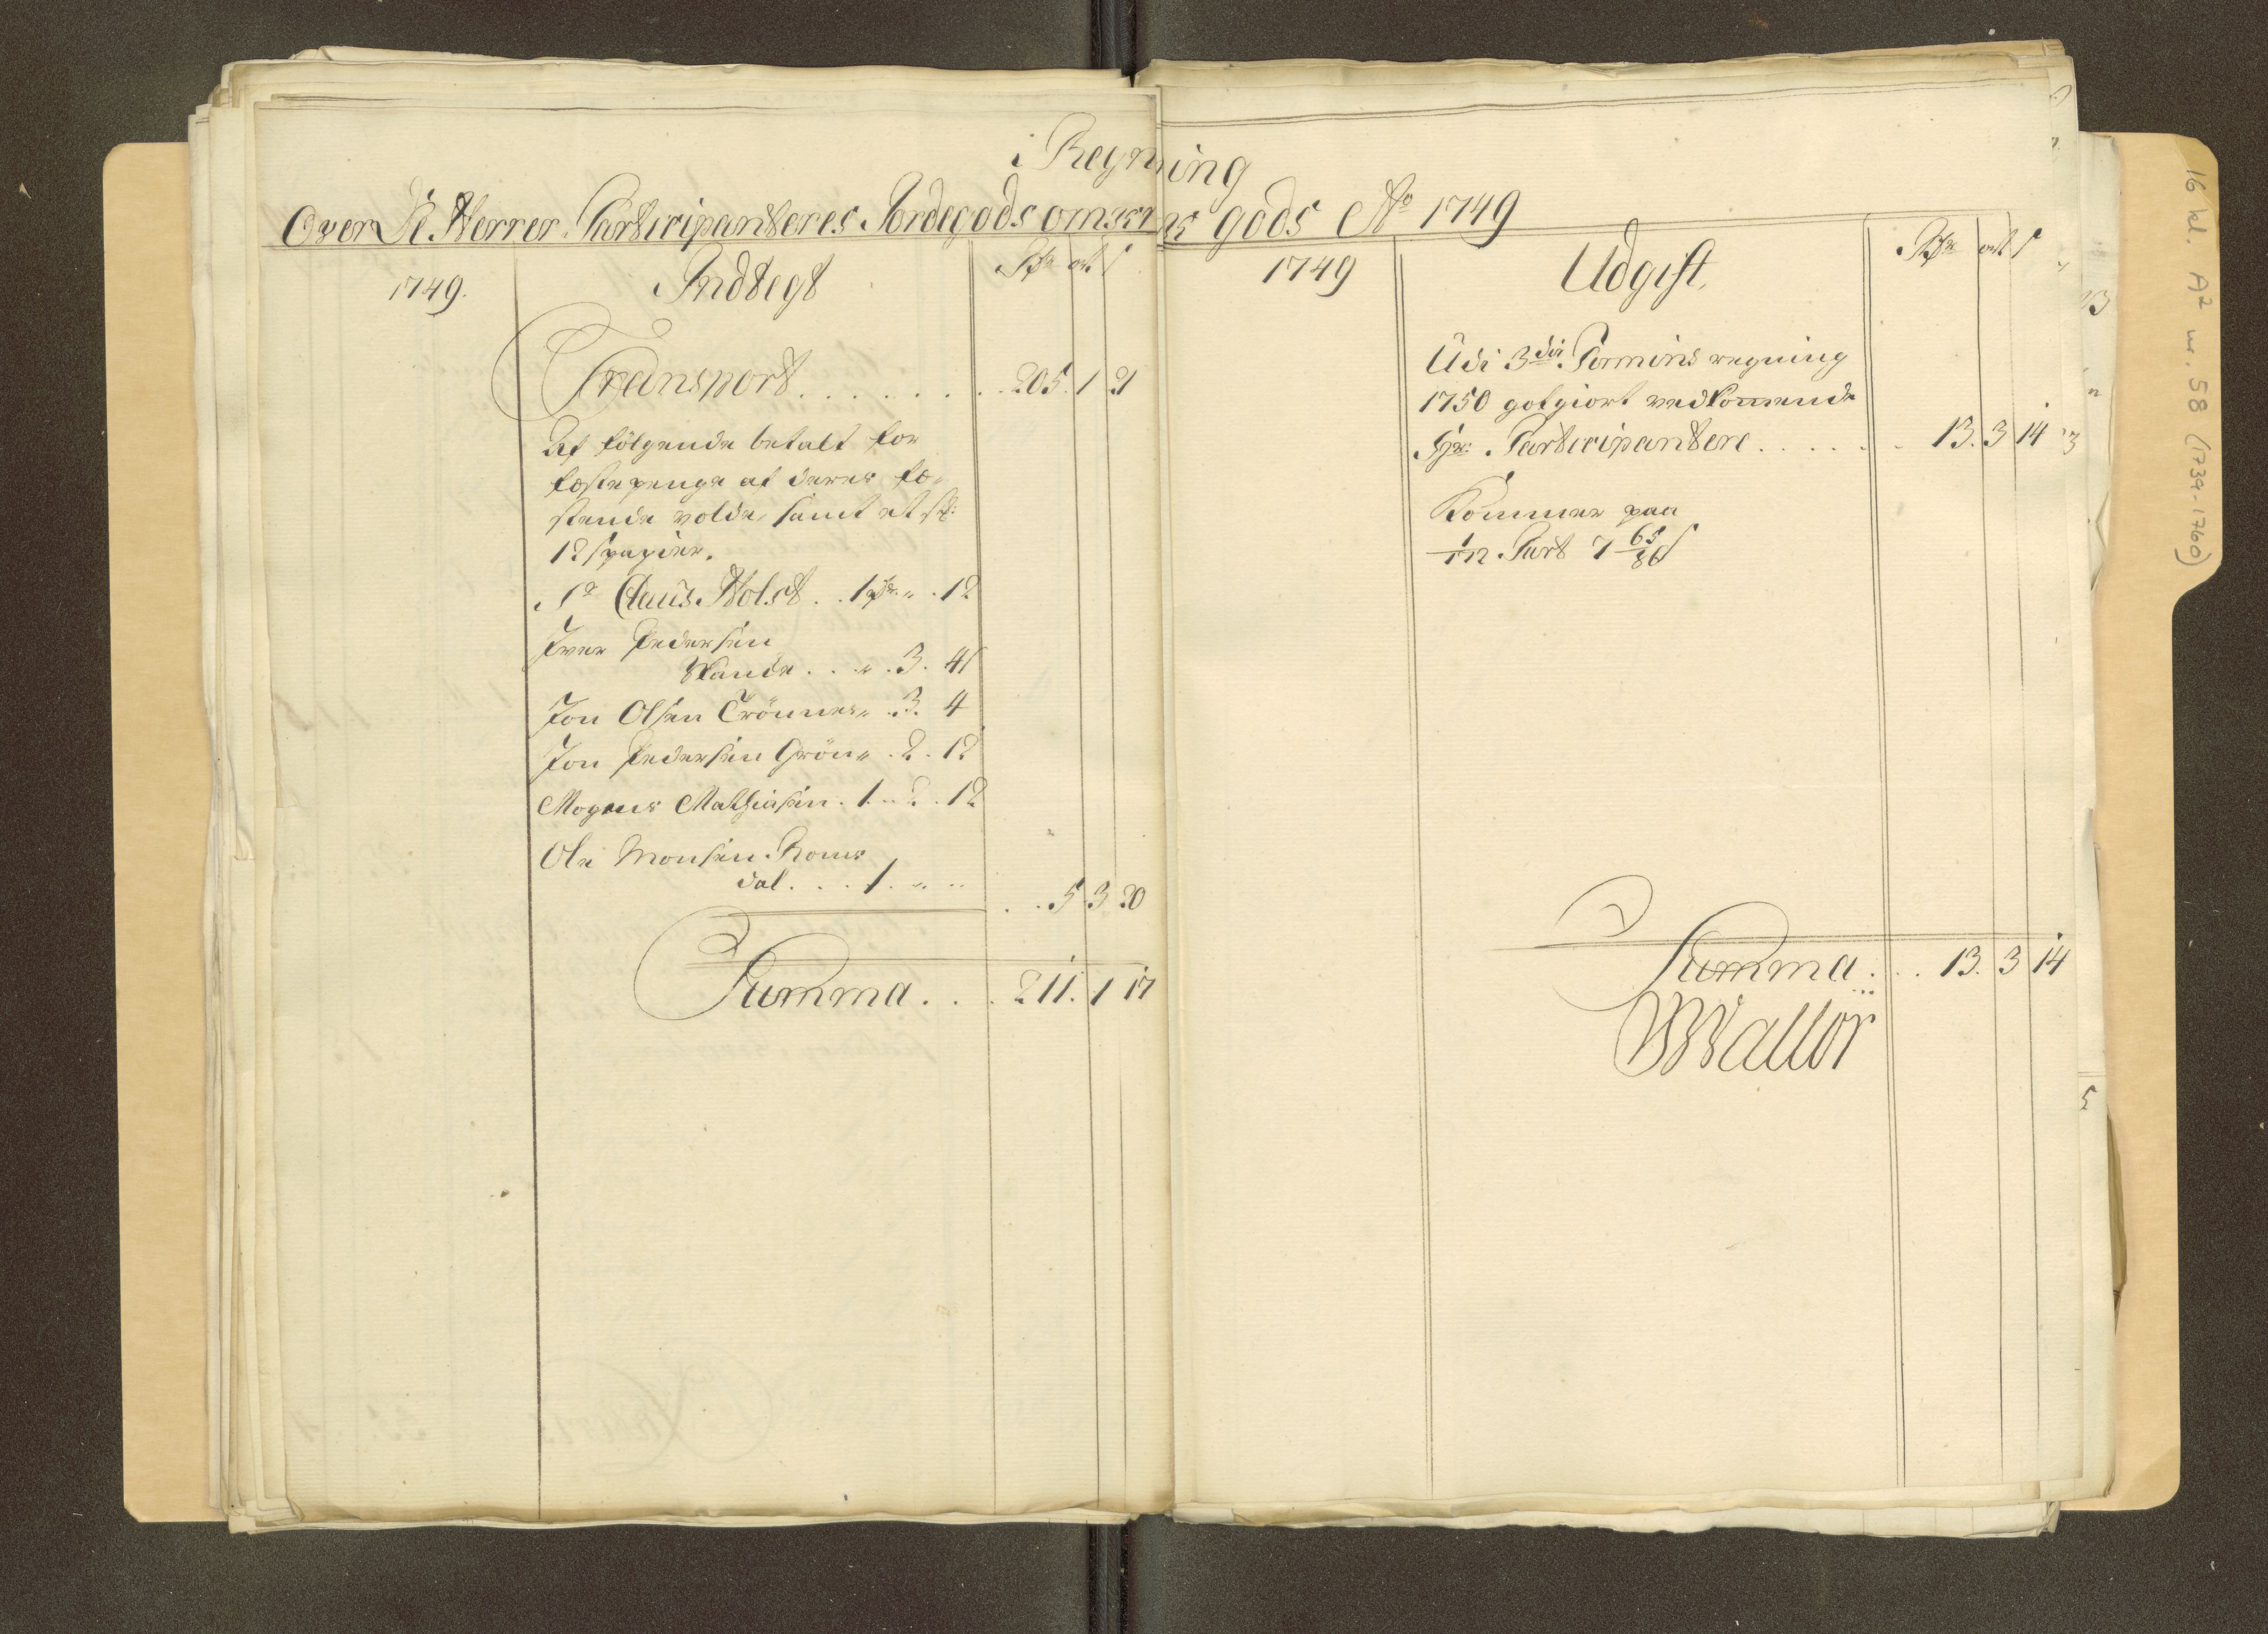 i Regning
Over De Herrer Participanteres Jordegods gods Ao 1749
1749. Indtegt Rdr ort s
Transport . . . . . . . . 205. 1 21
Af følgende betalt for
festepenge af deres fe-
stende volde, samt et st:
12 s papier.
Sr Claus Holst . . 1 rdr „ . 12
Iver Pedersen
Wande . . „ . 3. 4 s
Jon Olsen Trönnes „ . 3. 4
Jon Pedersen Grön „ . 2 . 12
Mogens Mathiasen . 1. 2 . 12
Ole Monsen Roms
dal . . . 1. „ „ . . 5 3 20
Summa . . . 211. 1 17
1749 Udgift Rdr ort s
Udi 3die Termins regning
1750 gotgiort vedkommende
Hr: Participantere . . . . . . 13. 3 14
Kommer paa
Part 7 s
Summa . . . 13. 3 14
16 kl. A² nr. 58 (1739-1760)